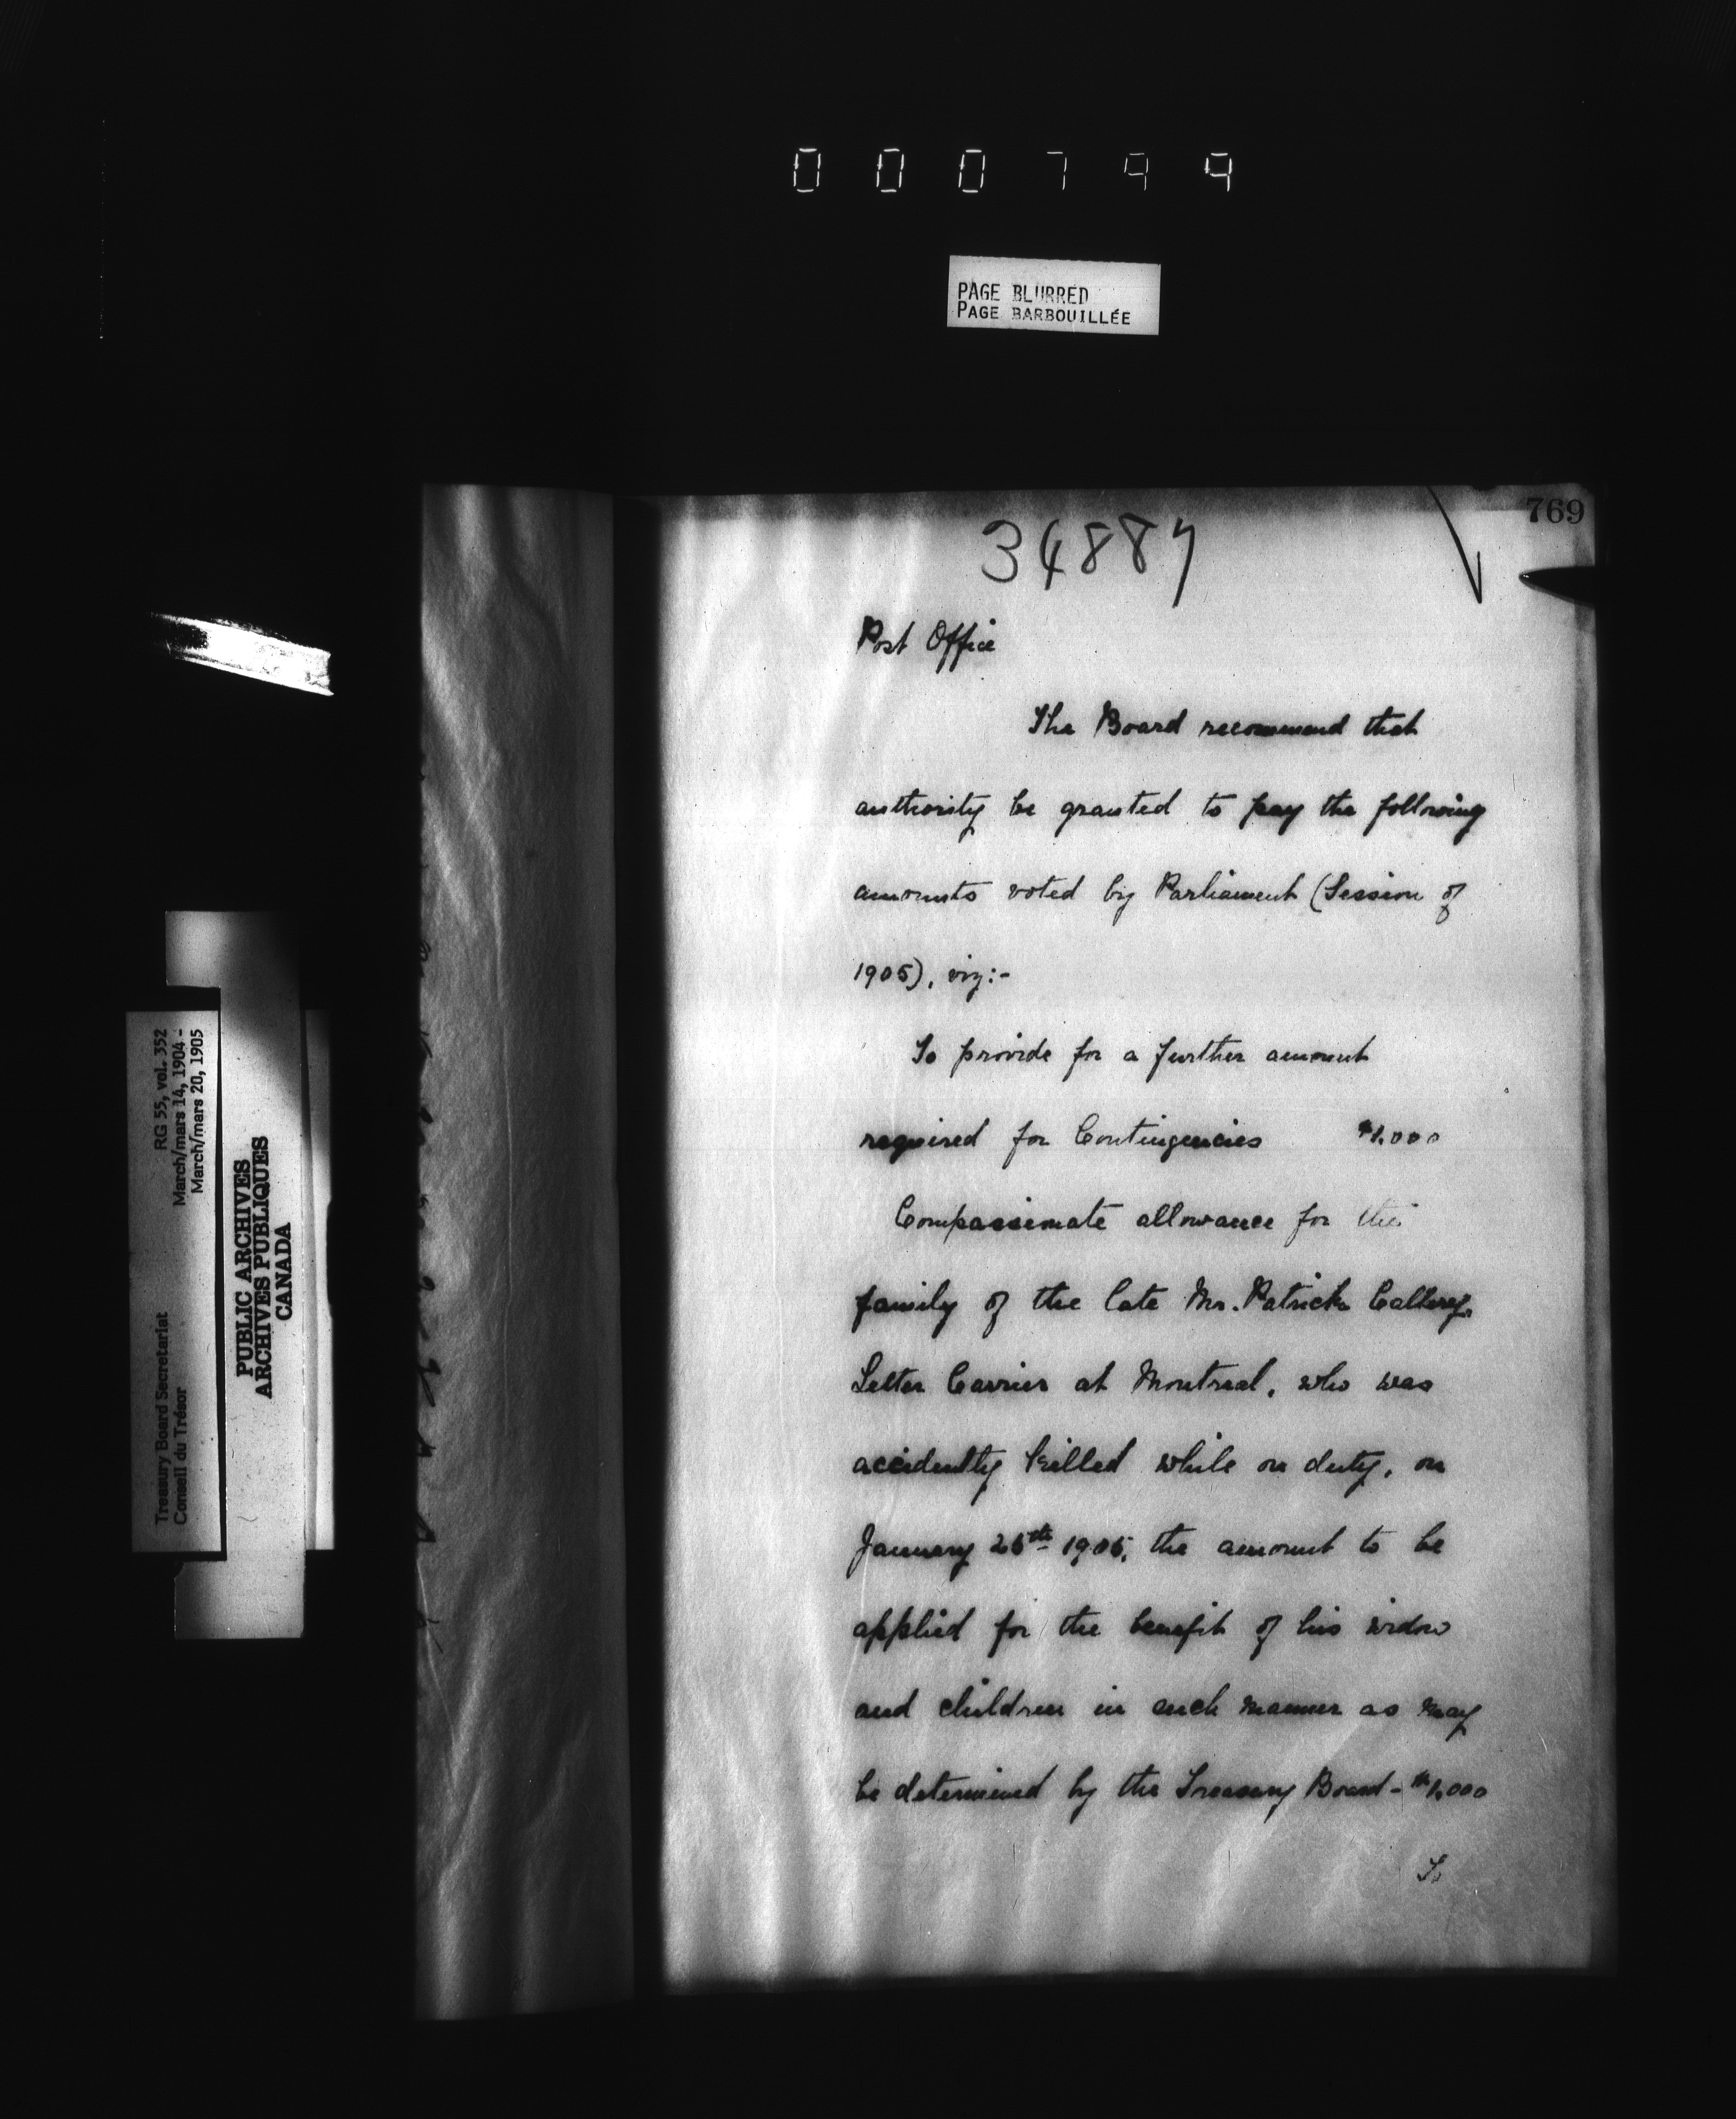 000799
PAGE BLURRED
PAGE BARBOUILLÉE
769
34887
Post Office
The Board recommend that
authority be granted to pay the following
amounts voted by Parliament (Session of
1905), viz:-
To provide for a further amount
required for Contingencies $1,000
Compassionate allowance for the
family of the late Mr. Patrick Callery,
Letter Carrier at Montreal, who was
accidently killed while on duty, on
January 25th 1905, the amount to be
applied for the benefit of his widow
and children in such manner as may
be determined by the Treasury Board - $1,000
To
RG 55, vol. 352
March/mars 14, 1904 -
March/mars 20, 1905
Treasury Board Secretariat
Conseil du Trésor
PUBLIC ARCHIVES
ARCHIVES PUBLIQUES
CANADA